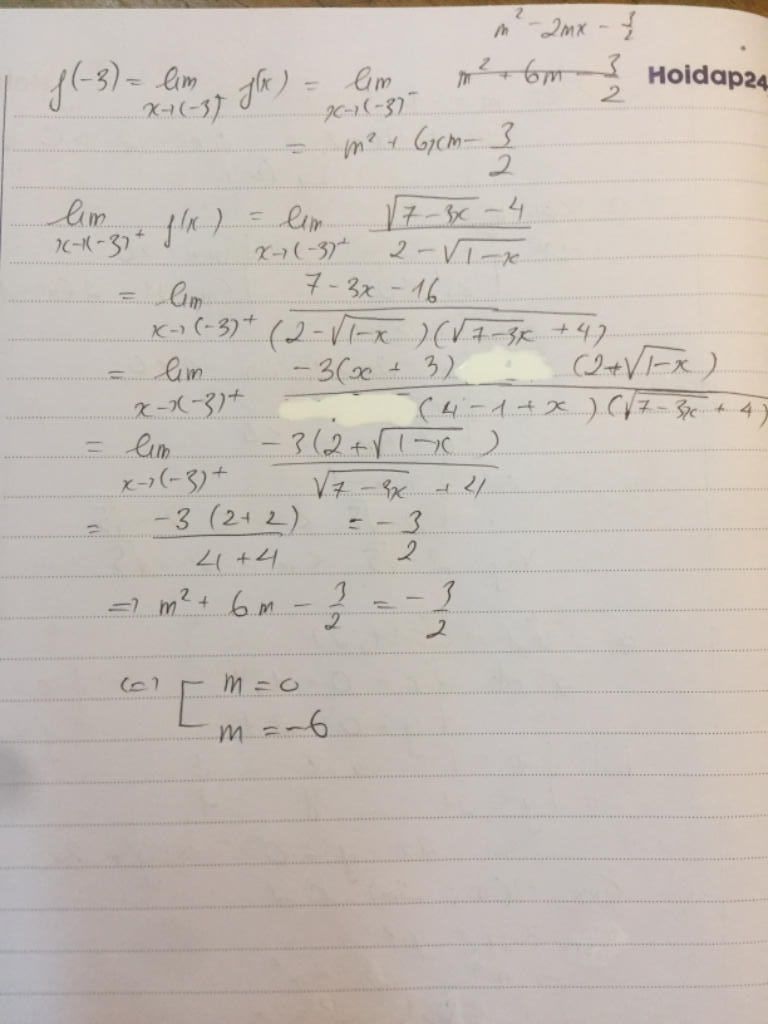 m² - 2mx - 3/2
f(-3) = lim x→(-3)⁻ f(x) = lim x→(-3)⁻ m² + 6m - 3/2
Hoidap24
= m² + 6xm - 3/2
lim x→(-3)⁺ f(x) = lim x→(-3)⁺ (√(7-3x) - 4)/(2 - √(1-x))
= lim x→(-3)⁺ (7 - 3x - 16)/((2-√(1-x))(√(7-3x) + 4))
= lim x→(-3)⁺ (-3(x + 3) (2+√(1-x)))/((4 - 1 + x)(√(7-3x) + 4))
= lim x→(-3)⁺ (-3(2+√(1-x)))/(√(7-3x) + 4)
= (-3(2+2))/(4+4) = -3/2
=> m² + 6m - 3/2 = -3/2
<=> [ m = 0
m = -6